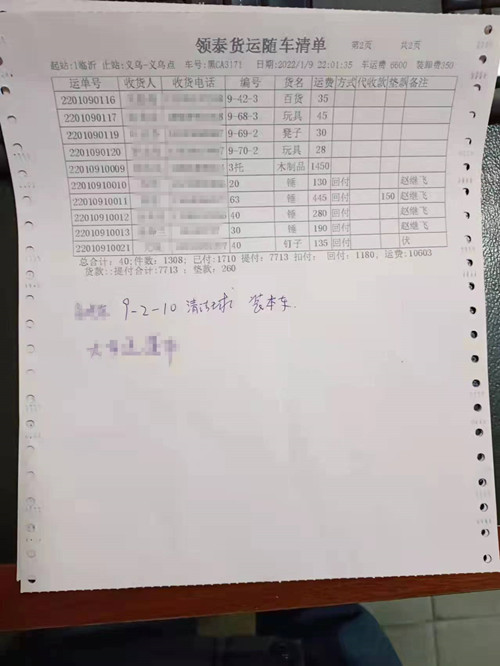 领泰货运随车清单 第2页 共2页
起站:临沂 止站:义乌-义乌点 车号:黑CA3171 日期:2022/1/9 22:01:35 车运费 6600 装卸费350
运单号 收货人 收货电话 编号 货名 运费 方式 代收款 垫款 备注
2201090116 9-42-3 百货 35
2201090117 9-68-3 玩具 45
2201090119 9-69-2 凳子 30
2201090120 9-70-2 玩具 28
22010910009 3托 木制品 1450
22010910010 20 锤 130 回付 赵继飞
22010910011 63 锤 445 回付 150 赵继飞
22010910012 40 锤 280 回付 赵继飞
22010910013 30 锤 190 回付 赵继飞
22010910021 40 钉子 135 回付 伏
总合计: 40;件数: 1308; 已付:1710 提付: 7713 扣付: 回付: 1180, 运费:10603
货款::提付合计:7713 ; 垫款: 260
9-2-10 清洁球 装本车.